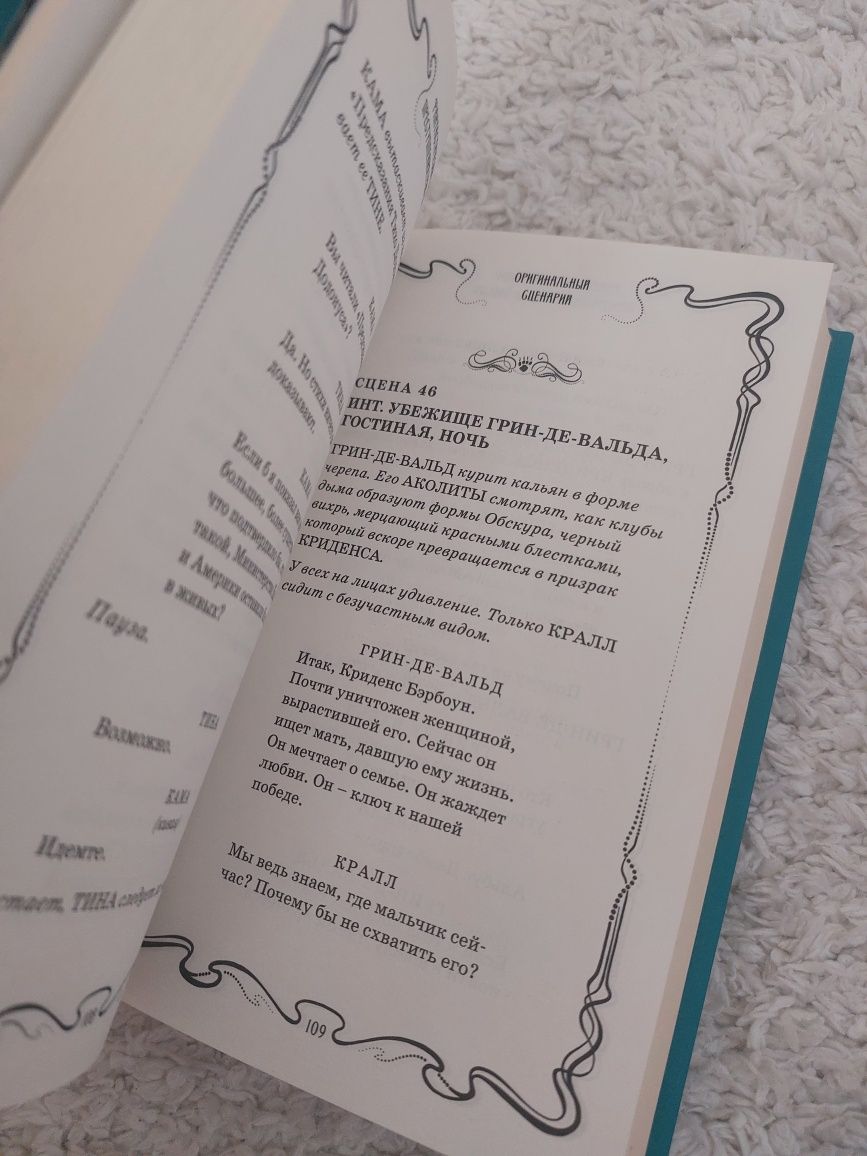 КАМА
«Предсказания
вает ее ТИНЕ.
Вы читали
Да. Но стихи
доказывают.
Если б я показал
большее, более
что подтвердил
тикой, Министерство
и Америки
в живых?
Пауза.
ТИНА
Возможно.
КАМА
Идемте.
ТИНА следует
ОРИГИНАЛЬНЫЙ
СЦЕНАРИЙ
СЦЕНА 46
ИНТ. УБЕЖИЩЕ ГРИН-ДЕ-ВАЛЬДА,
ГОСТИНАЯ, НОЧЬ
ГРИН-ДЕ-ВАЛЬД курит кальян в форме
черепа. Его АКОЛИТЫ смотрят, как клубы
дыма образуют формы Обскура, черный
вихрь, мерцающий красными блестками,
который вскоре превращается в призрак
КРИДЕНСА.
У всех на лицах удивление. Только КРАЛЛ
сидит с безучастным видом.
ГРИН-ДЕ-ВАЛЬД
Итак, Криденс Бэрбоун.
Почти уничтожен женщиной,
вырастившей его. Сейчас он
ищет мать, давшую ему жизнь.
Он мечтает о семье. Он жаждет
любви. Он – ключ к нашей
победе.
КРАЛЛ
Мы ведь знаем, где мальчик сей-
час? Почему бы не схватить его?
109